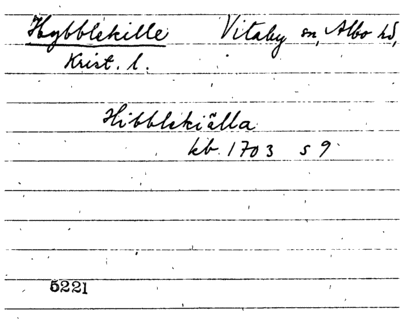 Hybblekille Vitaby sn, Albo hd,
Krist. l.
Hibblekiälla
kb. 1703 s 9
5221